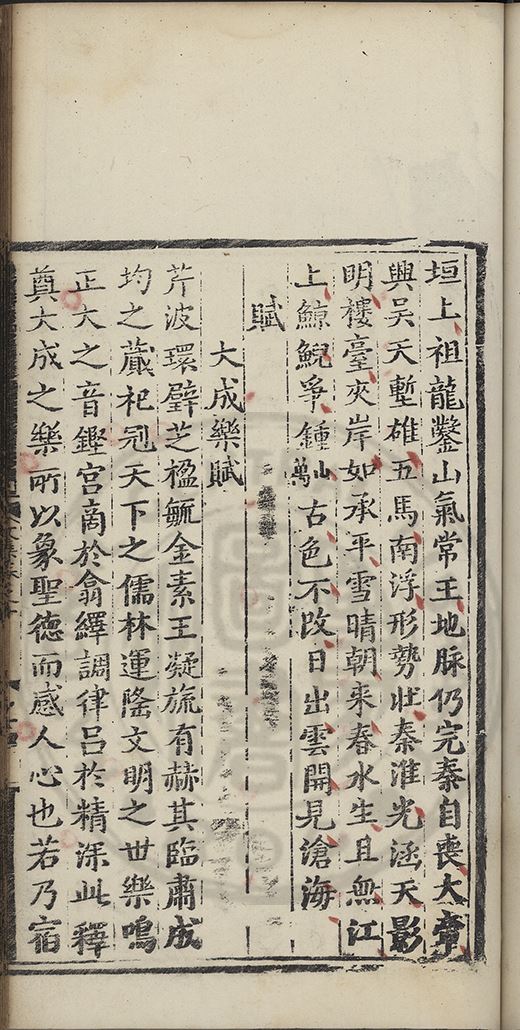 垣上祖龍鑿山氣常王地脉仍完秦自喪大㡛
興吳天塹雄五馬南浮形勢壯秦淮光涵天影
明樓臺夾岸如承平雪晴朝來春水生且無江
上鯨鯢爭鍾山萬古色不改日出雲開見滄海
賦
大成樂賦
芹波環璧芝楹毓金素王凝旒有赫其臨肅成
均之嚴祀冠天下之儒林運隆文明之世樂鳴
正大之音鏗宮商於翕繹調律呂於精深此釋
奠大成之樂所以象聖德而感人心也若乃宿